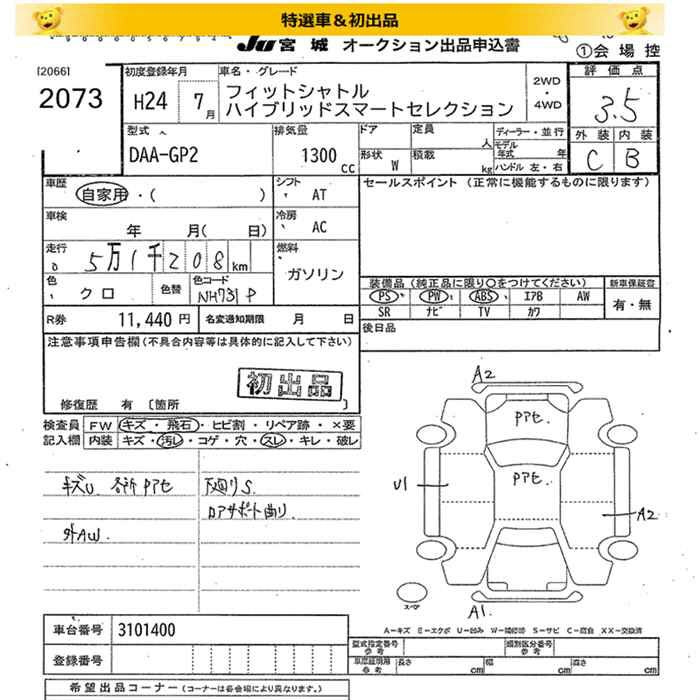 特選車＆初出品
JU 宮城 オークション出品申込書
①会場控
[2066]
2073
初度登録年月
H24 7月
車名・グレード
フィットシャトル
ハイブリッドスマートセレクション
2WD
・
4WD
評価点
3.5
外装 内装
C B
型式
DAA-GP2
排気量
1300 cc
ドア 定員 人
形状 W 積載 kg
ディーラー・並行
モデル年式 年
ハンドル 左・右
車歴
自家用・( )
シフト
AT
セールスポイント (正常に機能するものに限ります)
車検
年 月( 日)
冷房
AC
走行
5万1千208km
燃料
ガソリン
色 クロ
色替
色コード NH731P
装備品 (純正品に限り○をつけてください)
新車保証書
PS PW ABS エアB AW
SR ナビ TV カワ
有・無
R券 11,440円
名変通知期限 月 日
後日品
注意事項申告欄(不具合内容等は具体的に記入して下さい)
初出品
修復歴 有 〔箇所
検査員記入欄
FW キズ・飛石・ヒビ割・リペア跡・×要
内装 キズ・汚レ・コゲ・穴・スレ・キレ・破レ
キズU 各所Pアセ 下廻りS
コアサポート曲り
外AW
A2
Pアセ
Pアセ
U1
A2
スペア
A1
A−キズ E−エクボ U−凹み W−補修跡 S−サビ C−腐食 XX−交換済
車台番号 3101400
登録番号
型式指定番号参考
類別区分番号参考
車庫証明用参考 長さ cm 幅 cm 高さ cm
希望出品コーナー (コーナーは各会場により異なります。)